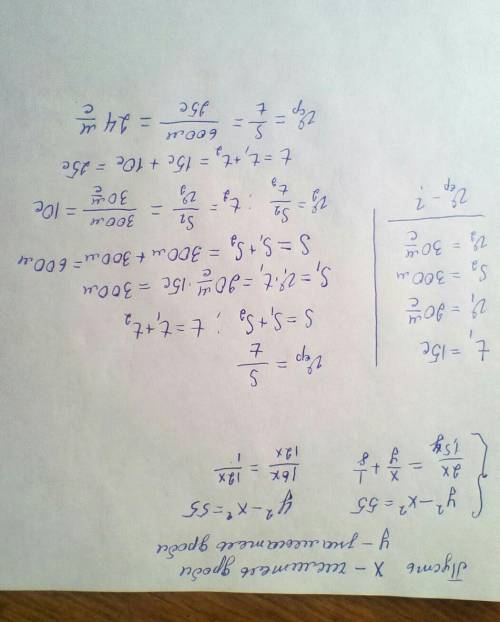 Пусть x - числитель дроби
y - знаменатель дроби
{ y² - x² = 55
2x/1,5y = x/y + 1/8
y² - x² = 55
16x/12x = 12x/1
t₁ = 15с
υ₁ = 20 м/с
S₂ = 300м
υ₂ = 30 м/с
υср - ?
υср = S/t
S = S₁ + S₂ ; t = t₁ + t₂
S₁ = υ₁·t₁ = 20 м/с · 15с = 300м
S = S₁ + S₂ = 300м + 300м = 600м
υ₂ = S₂/t₂ ; t₂ = S₂/υ₂ = 300м/30 м/с = 10с
t = t₁ + t₂ = 15с + 10с = 25с
υср = S/t = 600м/25с = 24 м/с